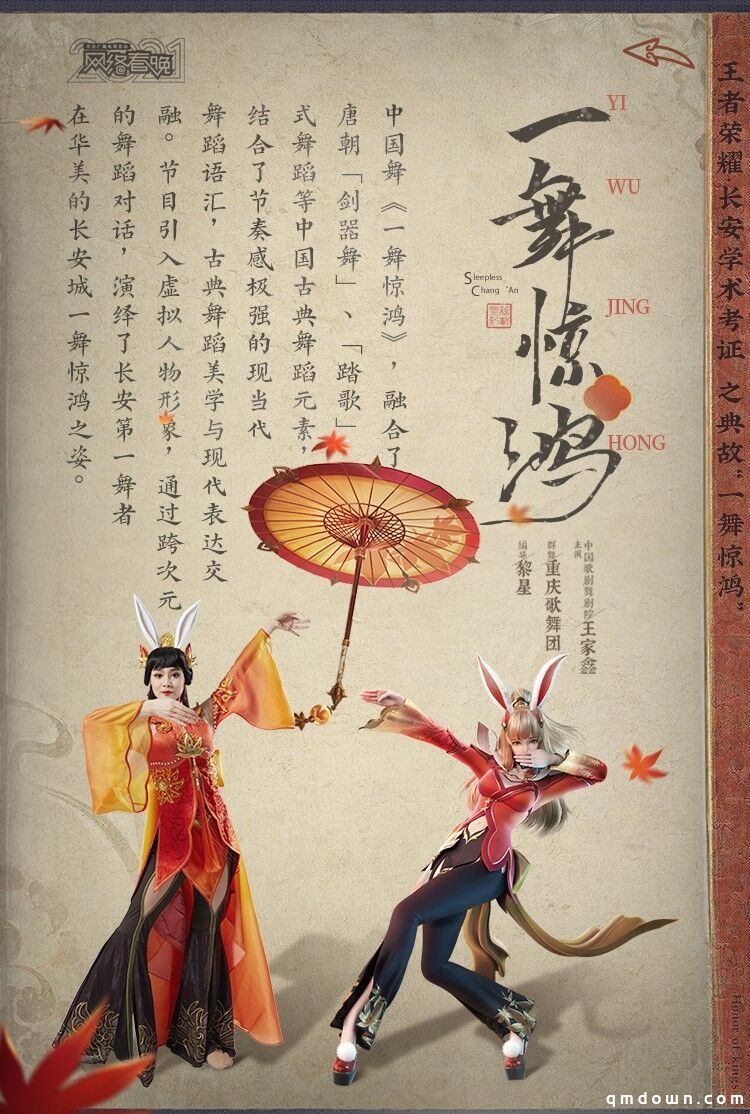 王者荣耀·长安学术考证 之典故："一舞惊鸿"
Honor of kings
中央广播电视总台
2021
网络春晚
一舞惊鸿
YI
WU
JING
HONG
Sleepless
Chang 'An
中国歌剧舞剧院
主演 王家鑫
群舞 重庆歌舞团
编导 黎星
中国舞《一舞惊鸿》，融合了
唐朝「剑器舞」、「踏歌」
式舞蹈等中国古典舞蹈元素，
结合了节奏感极强的现当代
舞蹈语汇，古典舞蹈美学与现代表达交
融。节目引入虚拟人物形象，通过跨次元
的舞蹈对话，演绎了长安第一舞者
在华美的长安城一舞惊鸿之姿。
qmdown.com